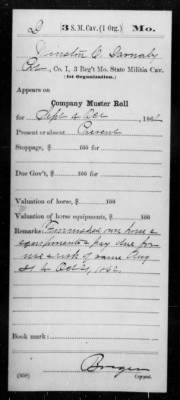 3 S. M. Cav. (1 Org.) Mo.
Winston C
, Co. I, 3 Reg't Mo. State Militia Cav.
(1st Organization.)
Appears on
Company Muster Roll
for Sept & Oct, 186
Present or absent Present
Stoppage, $ 100 for
Due Gov't, $ 100 for
Valuation of horse, $ 100
Valuation of horse equipments, $ 100
Remarks: Furnished own horse &
equipments & pay due for
use & risk of same Aug
31 to Oct 31, 186
Book mark:
(358)
Copyist.